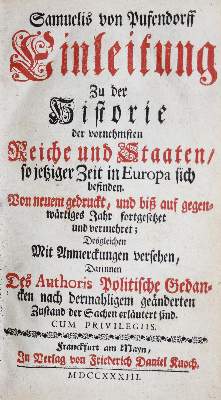 Samuelis von Pufendorff
Einleitung
Zu der
Historie
der vornehmsten
Reiche und Staaten/
so jetziger Zeit in Europa sich
befinden.
Von neuem gedruckt, und biß auf gegen-
wärtiges Jahr fortgesetzet
und vermehret;
Desgleichen
Mit Anmerckungen versehen,
Darinnen
Des Authoris Politische Gedan-
cken nach dermahligem geänderten
Zustand der Sachen erläutert sind.
CUM PRIVILEGIIS.
Franckfurt am Mayn,
In Verlag von Friederich Daniel Knoch.
MDCCXXXIII.